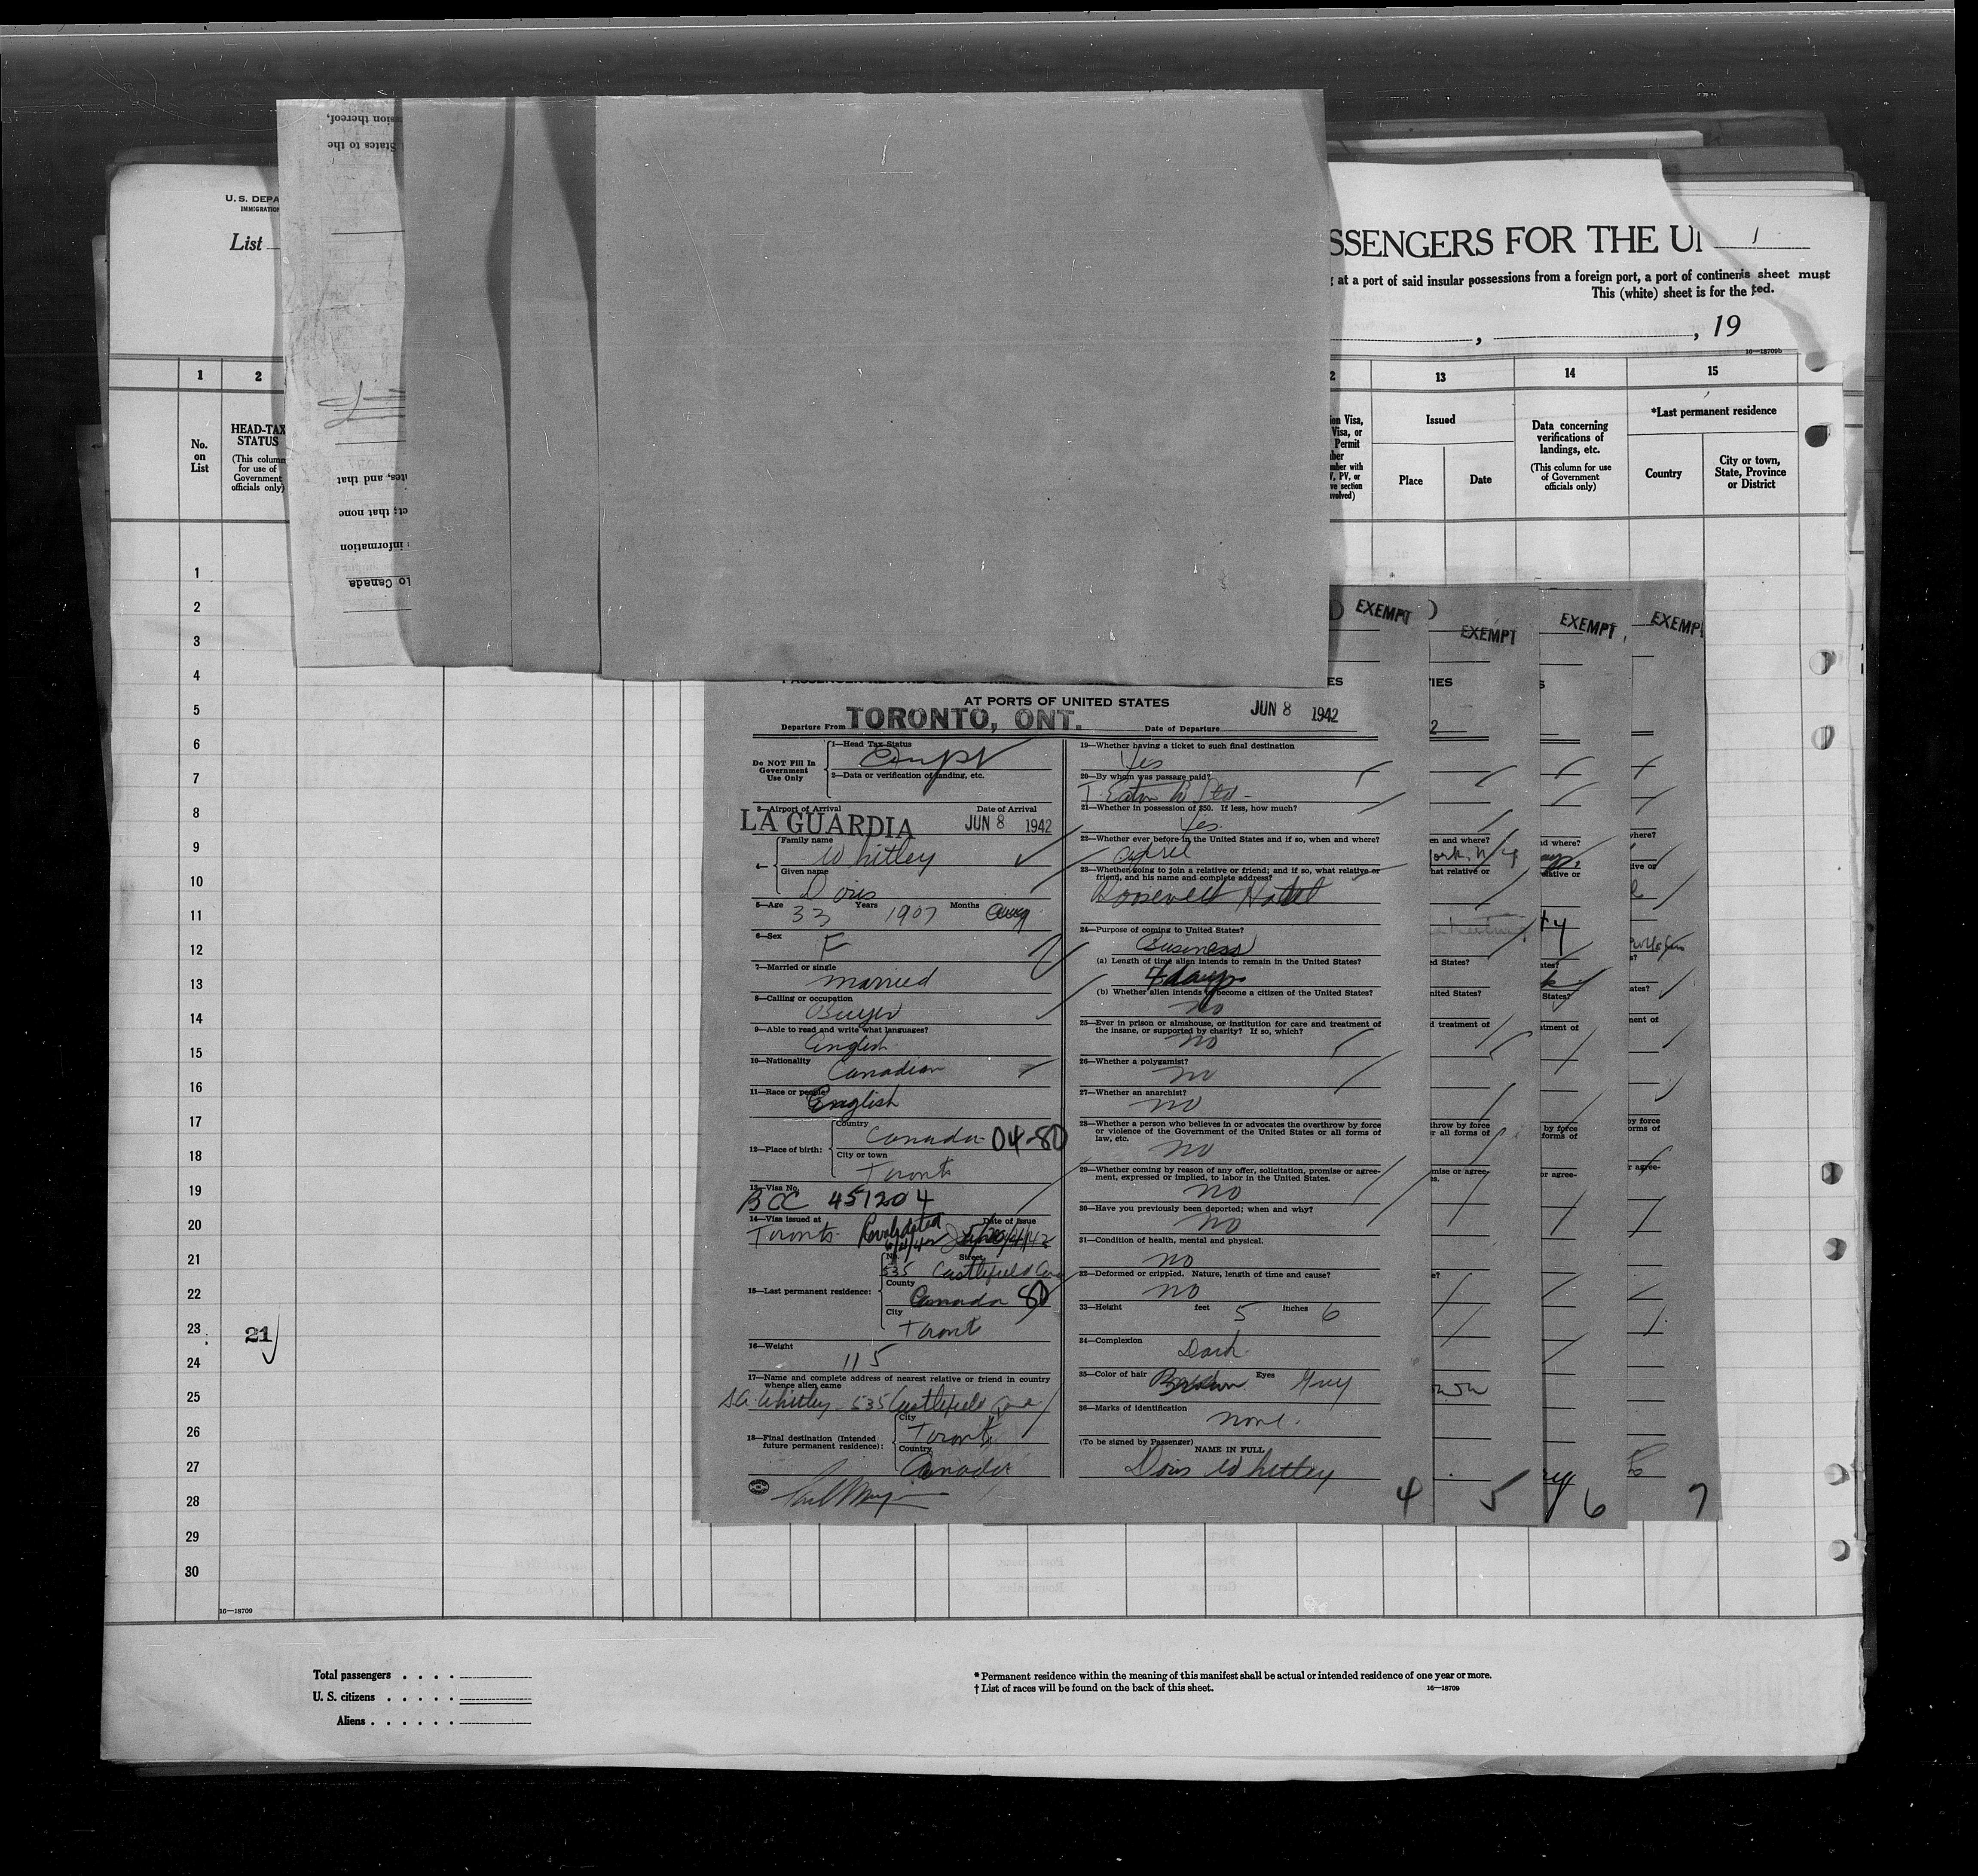 U. S. DEPA
IMMIGRATION
List
SSENGERS FOR THE UI 1
g at a port of said insular possessions from a foreign port, a port of continen is sheet must
This (white) sheet is for the ted.
, , 19
16—18709b
1 2 2 13 14 15
No. on List
HEAD-TAX STATUS
(This column for use of Government officials only)
ion Visa,
Visa, or
Permit
ber
mber with
V, PV, or
ve section
nvolved)
Issued
Place
Date
Data concerning verifications of landings, etc.
(This column for use of Government officials only)
*Last permanent residence
Country
City or town, State, Province or District
sion thereof,
States to the
tes, and that
ct; that none
information
to Canada
1
2
3
4
5
6
7
8
9
10
11
12
13
14
15
16
17
18
19
20
21
22
23
24
25
26
27
28
29
30
21
16—18709
EXEMPT
EXEMPT
EXEMPT
EXEMP
AT PORTS OF UNITED STATES
Departure From TORONTO, ONT. Date of Departure JUN 8 1942
Do NOT Fill In Government Use Only
1—Head Tax Status
2—Data or verification of landing, etc.
3—Airport of Arrival LA GUARDIA Date of Arrival JUN 8 1942
4— Family name Whitley
Given name Doris
5—Age 33 Years 1907 Months Aug
6—Sex F
7—Married or single married
8—Calling or occupation Buyer
9—Able to read and write what languages? English
10—Nationality Canadian
11—Race or people English
12—Place of birth: Country Canada 04-80
City or town Toronto
13—Visa No. BCC 451204
14—Visa issued at Toronto Revalidated Date of Issue
15—Last permanent residence: No. 535 Street Castlefield Ave
County Canada 80
City Toronto
16—Weight 115
17—Name and complete address of nearest relative or friend in country whence alien came
Whitley - 535 Castlefield Ave
18—Final destination (Intended future permanent residence): City Toronto
Country Canada
19—Whether having a ticket to such final destination
Yes
20—By whom was passage paid?
T. Eaton Co Ltd.
21—Whether in possession of $50. If less, how much?
Yes.
22—Whether ever before in the United States and if so, when and where?
April
23—Whether going to join a relative or friend; and if so, what relative or friend, and his name and complete address?
Roosevelt Hotel
24—Purpose of coming to United States?
Business
(a) Length of time alien intends to remain in the United States?
4 days
(b) Whether alien intends to become a citizen of the United States?
No
25—Ever in prison or almshouse, or institution for care and treatment of the insane, or supported by charity? If so, which?
no
26—Whether a polygamist?
no
27—Whether an anarchist?
no
28—Whether a person who believes in or advocates the overthrow by force or violence of the Government of the United States or all forms of law, etc.
no
29—Whether coming by reason of any offer, solicitation, promise or agreement, expressed or implied, to labor in the United States.
no
30—Have you previously been deported; when and why?
no
31—Condition of health, mental and physical.
no
32—Deformed or crippled. Nature, length of time and cause?
no
33—Height feet 5 inches 6
34—Complexion Dark
35—Color of hair Brown Eyes Grey
36—Marks of identification none.
(To be signed by Passenger)
NAME IN FULL
Doris Whitley
4 5 6 7
Total passengers . . . .
U. S. citizens . . . . .
Aliens . . . . . .
* Permanent residence within the meaning of this manifest shall be actual or intended residence of one year or more.
† List of races will be found on the back of this sheet. 16—18709